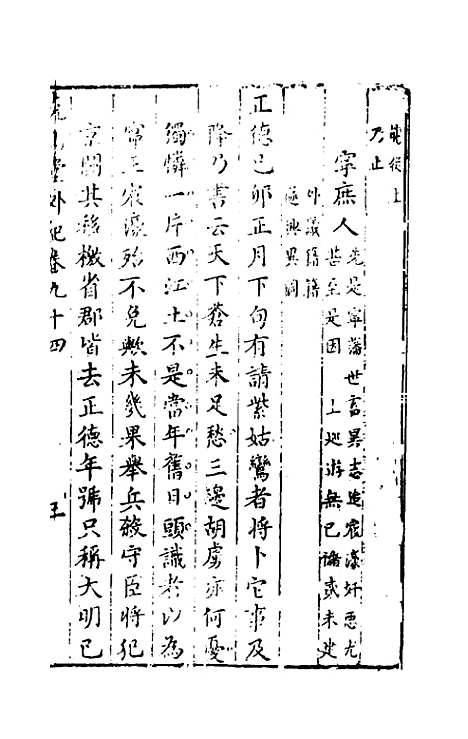 能從上
乃止
寧庶人先是寧藩世畜異志迨宸濠奸惡尤
甚至是因 上廵游無已儲貳未建
外議籍籍
遂興異圖
正德己卯正月下旬有請紫姑鸞者將卜它事及
降乃書云天下蒼生未足愁三邊胡虜亦何憂
獨憐一片西江土不是當年舊日頭識者以為
寧王宸濠殆不免歟未幾果舉兵殺守臣將犯
京闕其移檄省郡皆去正德年號只稱大明己
堯山堂外紀卷九十四